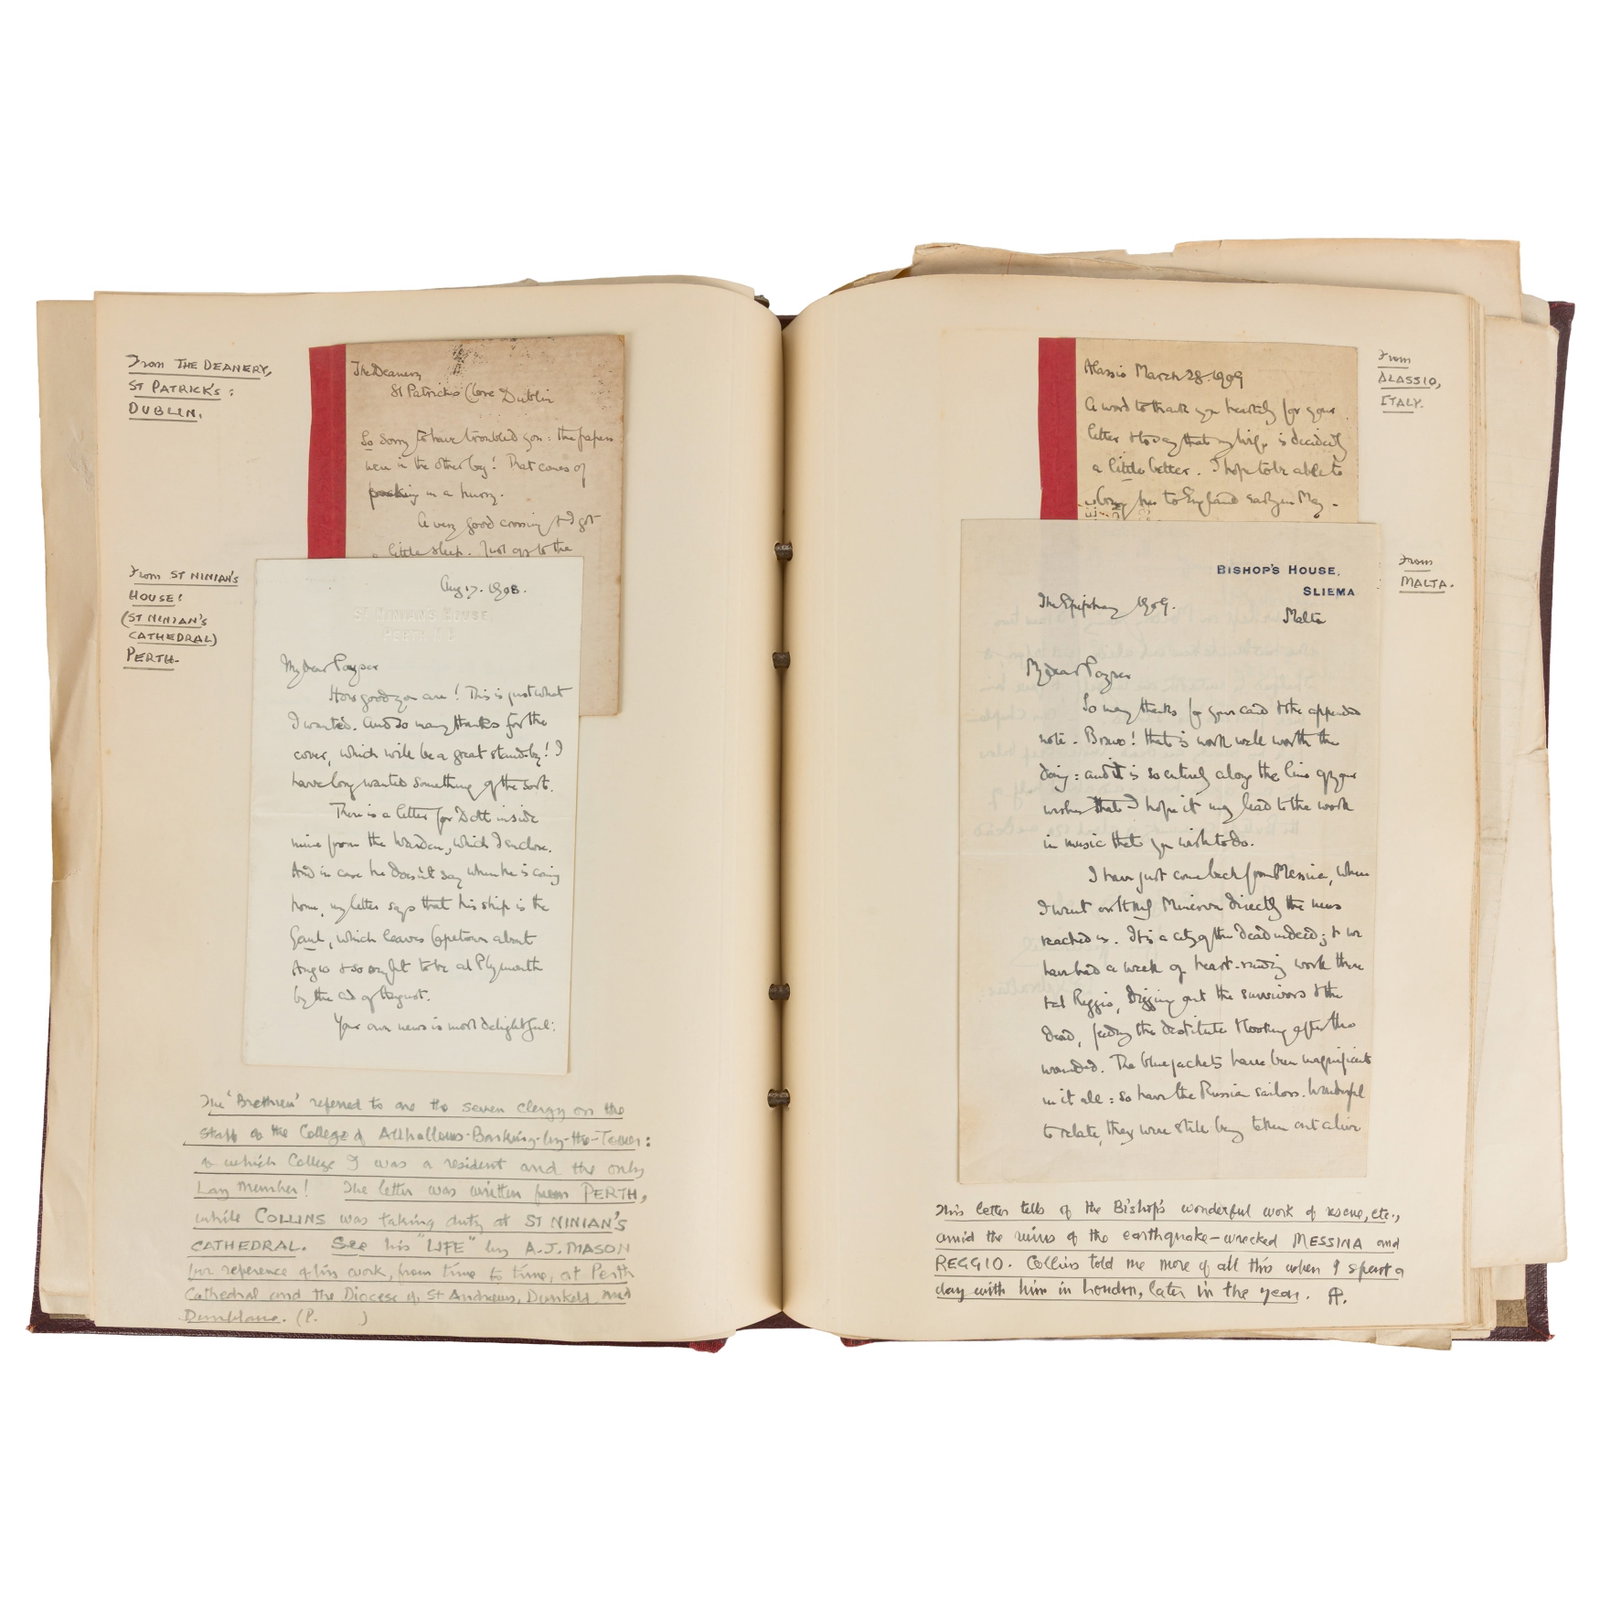 From THE DEANERY,
ST PATRICK'S:
DUBLIN.
The Deanery
St Patrick's Close Dublin
So sorry to have troubled you: the papers
were in the other bag! That comes of
packing in a hurry.
A very good crossing & I got
a little sleep. Just off to the
From ST NINIAN'S
HOUSE:
(ST NINIAN'S
CATHEDRAL)
PERTH.
Aug 7. 1908.
ST NINIAN'S HOUSE,
PERTH. N.B.
My dear Poyser
How good you are! This is just what
I wanted. And so many thanks for the
cover, which will be a great standby! I
have long wanted something of the sort.
There is a letter for Dott inside
mine from the Warden, which I enclose.
And in case he doesn't say when he is coming
home, my letter says that his ship is the
Gaul, which leaves Capetown about
Aug 10 & so ought to be at Plymouth
by the end of August.
Your own news is most delightful:
The 'Brethren' referred to are the seven clergy on the
staff of the College of Allhallows-Barking-by-the-Tower:
of which College I was a resident and the only
Lay Member! The letter was written from PERTH,
while COLLINS was taking duty at ST NINIAN'S
CATHEDRAL. See his "LIFE" by A.J. MASON
for reference of his work, from time to time, at Perth
Cathedral and the Diocese of St Andrews, Dunkeld, and
Dunblane. (P. )
From
ALASSIO,
ITALY.
Alassio March 28. 1909
A word to thank you heartily for your
letter & to say that my wife is decidedly
a little better. I hope to be able to
bring her to England early in May.
From
MALTA.
BISHOP'S HOUSE,
SLIEMA
Malta
The Epiphany 1909.
My dear Poyser
So many thanks for your card & the appended
note. Bravo! that is work well worth the
doing: and it is so entirely along the line of your
wishes that I hope it may lead to the work
in music that you wish to do.
I have just come back from Messina, where
I went on HMS Minerva directly the news
reached us. It is a city of the Dead indeed; & we
have had a week of heart-rending work there
& at Reggio, digging out the survivors & the
dead, feeding the destitute & looking after the
wounded. The bluejackets have been magnificent
in it all: so have the Russian sailors. Wonderful
to relate, they were still being taken out alive
This letter tells of the Bishop's wonderful work of rescue, etc.,
amid the ruins of the earthquake-wrecked MESSINA and
REGGIO. Collins told me more of all this when I spent a
day with him in London, later in the year. AP.